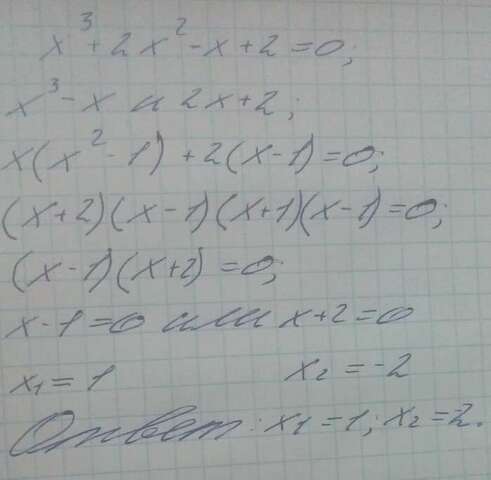 x³+2x²-x+2=0;
x³-x и 2x+2;
x(x²-1)+2(x-1)=0;
(x+2)(x-1)(x+1)(x-1)=0;
(x-1)(x+2)=0;
x-1=0 или x+2=0
x₁=1 x₂=-2
Ответ: x₁=1; x₂=2.